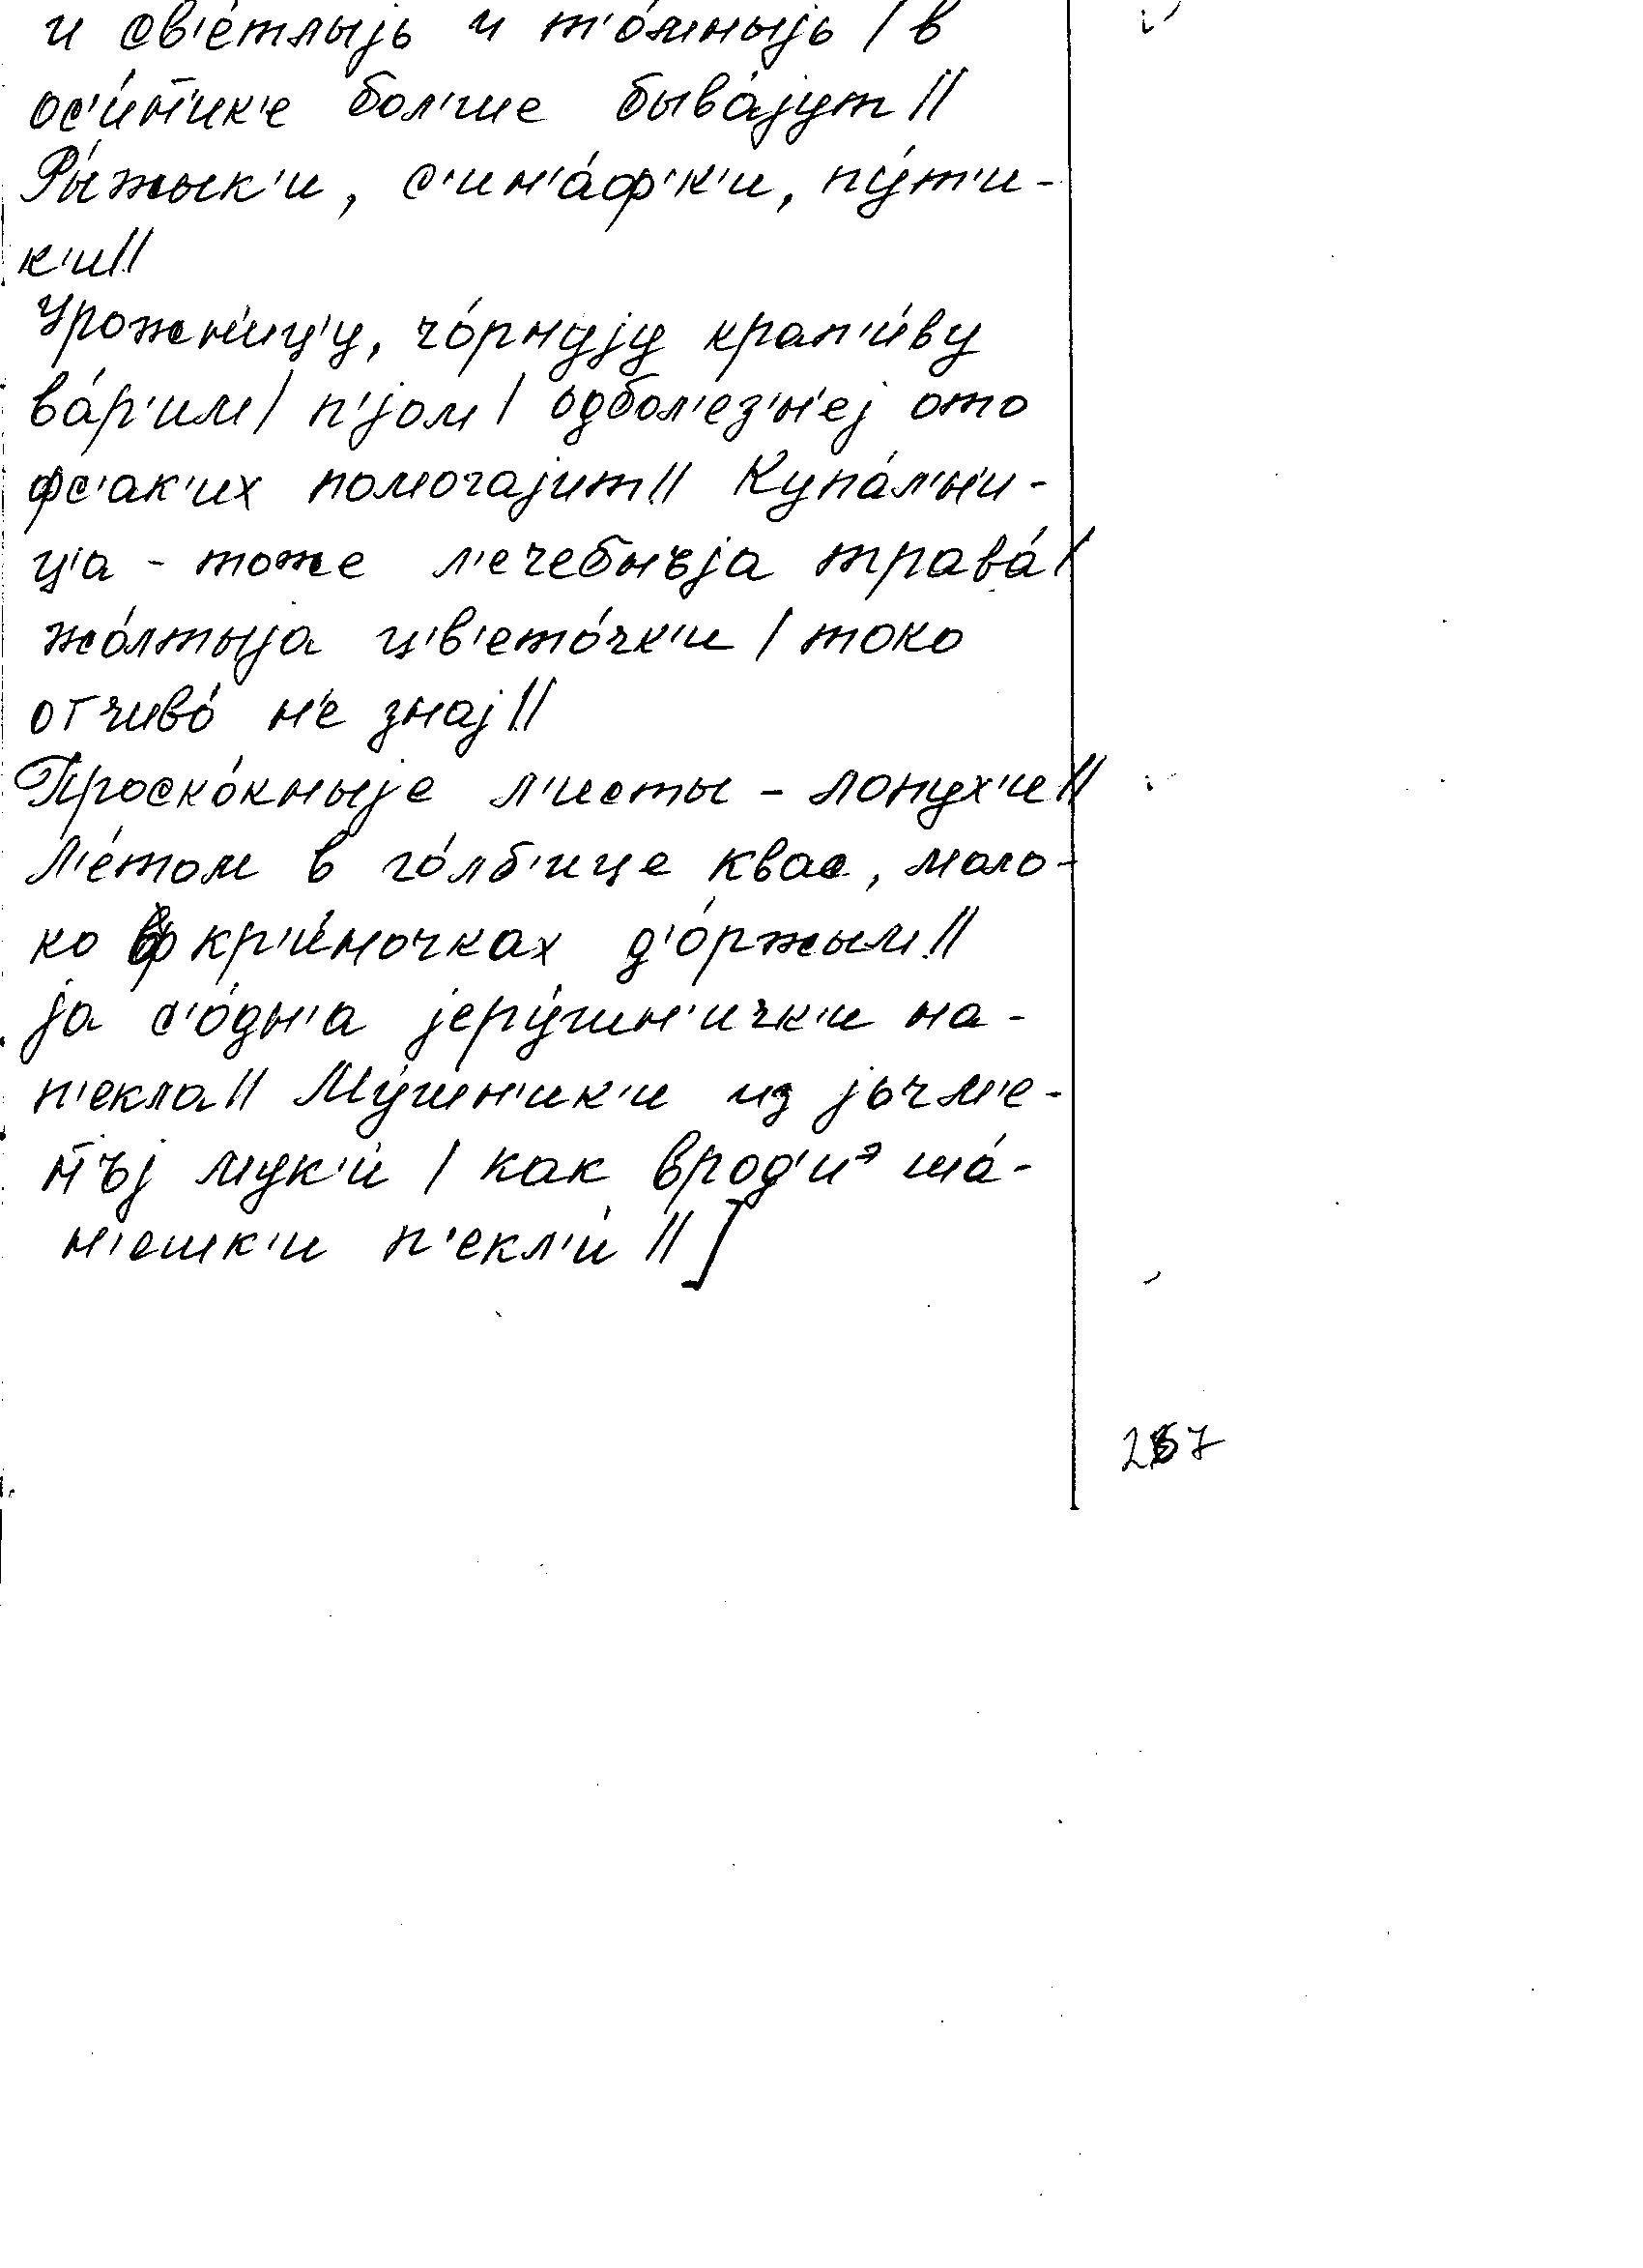 и св'е́тлыjь и т'о́мныjь / в
ос'и́н̄'ик'е бол'ше быва́jут //
Ры́жык'и, с'ин'а́ф'к'и, пу́т'и-
к'и //
Урожн'иц'у, чо́рнуjу крап'и́ву
ва́р'им / п'jом / одбол'ез'н'еj ото
фс'ак'их помогаjит // Купа́л'н'и-
ц'а - тоже л'ечебнъjа трава́ /
жо́лтыjа ц'в'ето́чк'и / токо
отчиво́ н'е знаj //
Проско́кныjе л'исты - лопух'и //
Л'е́том в го́лб'ице квас, моло-
ко ф кр'и́ночках д'о́ржым //
jа с'о́дн'а jеру́шн'ичк'и на-
п'екла // Му́шн'ик'и из jьчм'е-
н̄ъj мук'и́ / как врод'иэ ша́-
н'ешк'и п'екл'и́ // ]
267